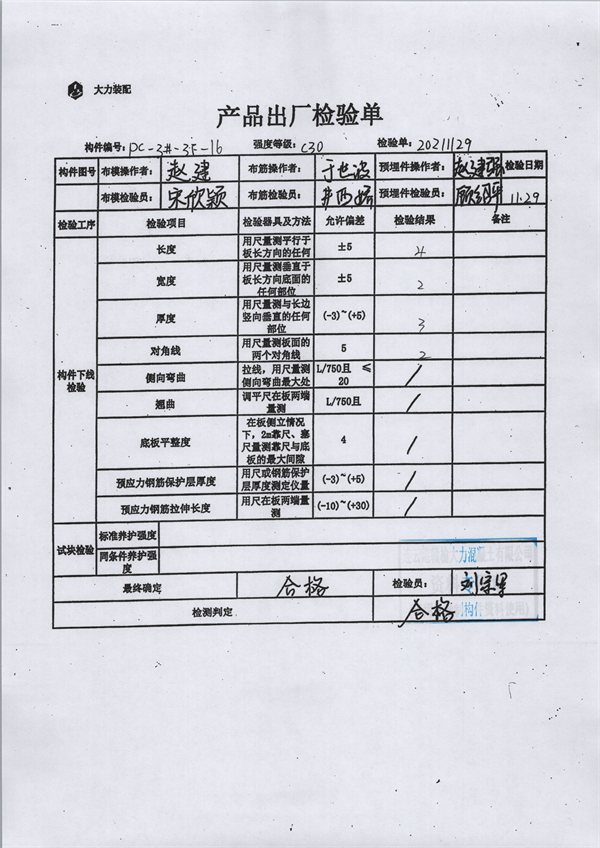 大力装配
产品出厂检验单
构件编号: PC-3#-3F-16 强度等级: C30 检验单: 20211129
构件图号 布模操作者: 赵建 布筋操作者: 于世波 预埋件操作者: 赵建强 检验日期
布模检验员: 宋欣颖 布筋检验员: 预埋件检验员: 11.29
检验工序 检验项目 检验器具及方法 允许偏差 检验结果 备注
构件下线检验
长度 用尺量测平行于板长方向的任何 ±5 4
宽度 用尺量测垂直于板长方向底面的任何部位 ±5 2
厚度 用尺量测与长边竖向垂直的任何部位 (-3)~(+5) 3
对角线 用尺量测板面的两个对角线 5 2
侧向弯曲 拉线,用尺量测侧向弯曲最大处 L/750且 ≤20 /
翘曲 调平尺在板两端量测 L/750且 /
底板平整度 在板侧立情况下,2m靠尺、塞尺量测靠尺与底板的最大间隙 4 /
预应力钢筋保护层厚度 用尺或钢筋保护层厚度测定仪量 (-3)~(+5) /
预应力钢筋拉伸长度 用尺在板两端量测 (-10)~(+30) /
试块检验 标准养护强度
同条件养护强度
最终确定 合格 检验员:
检测判定 合格
大力混凝土有限公司